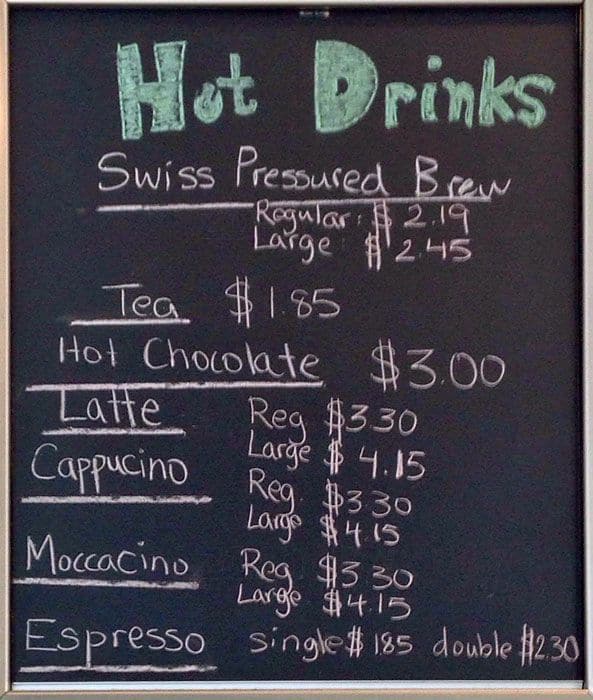 Hot Drinks
Swiss Pressured Brew
Regular: $ 2.19
Large: $ 2.45
Tea $1.85
Hot Chocolate $3.00
Latte Reg $3.30
Large $ 4.15
Cappucino Reg. $3.30
Large $4.15
Moccacino Reg $3.30
Large $4.15
Espresso single $ 185 double $2.30